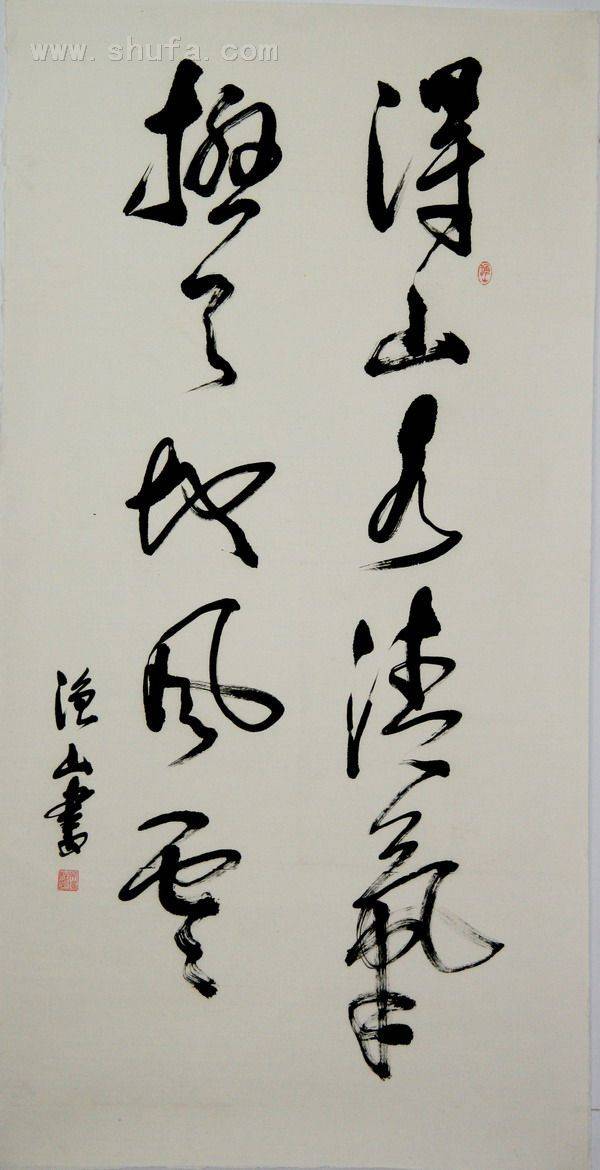 www.shufa.com
得山水清氣
極天地風雲
漁山書